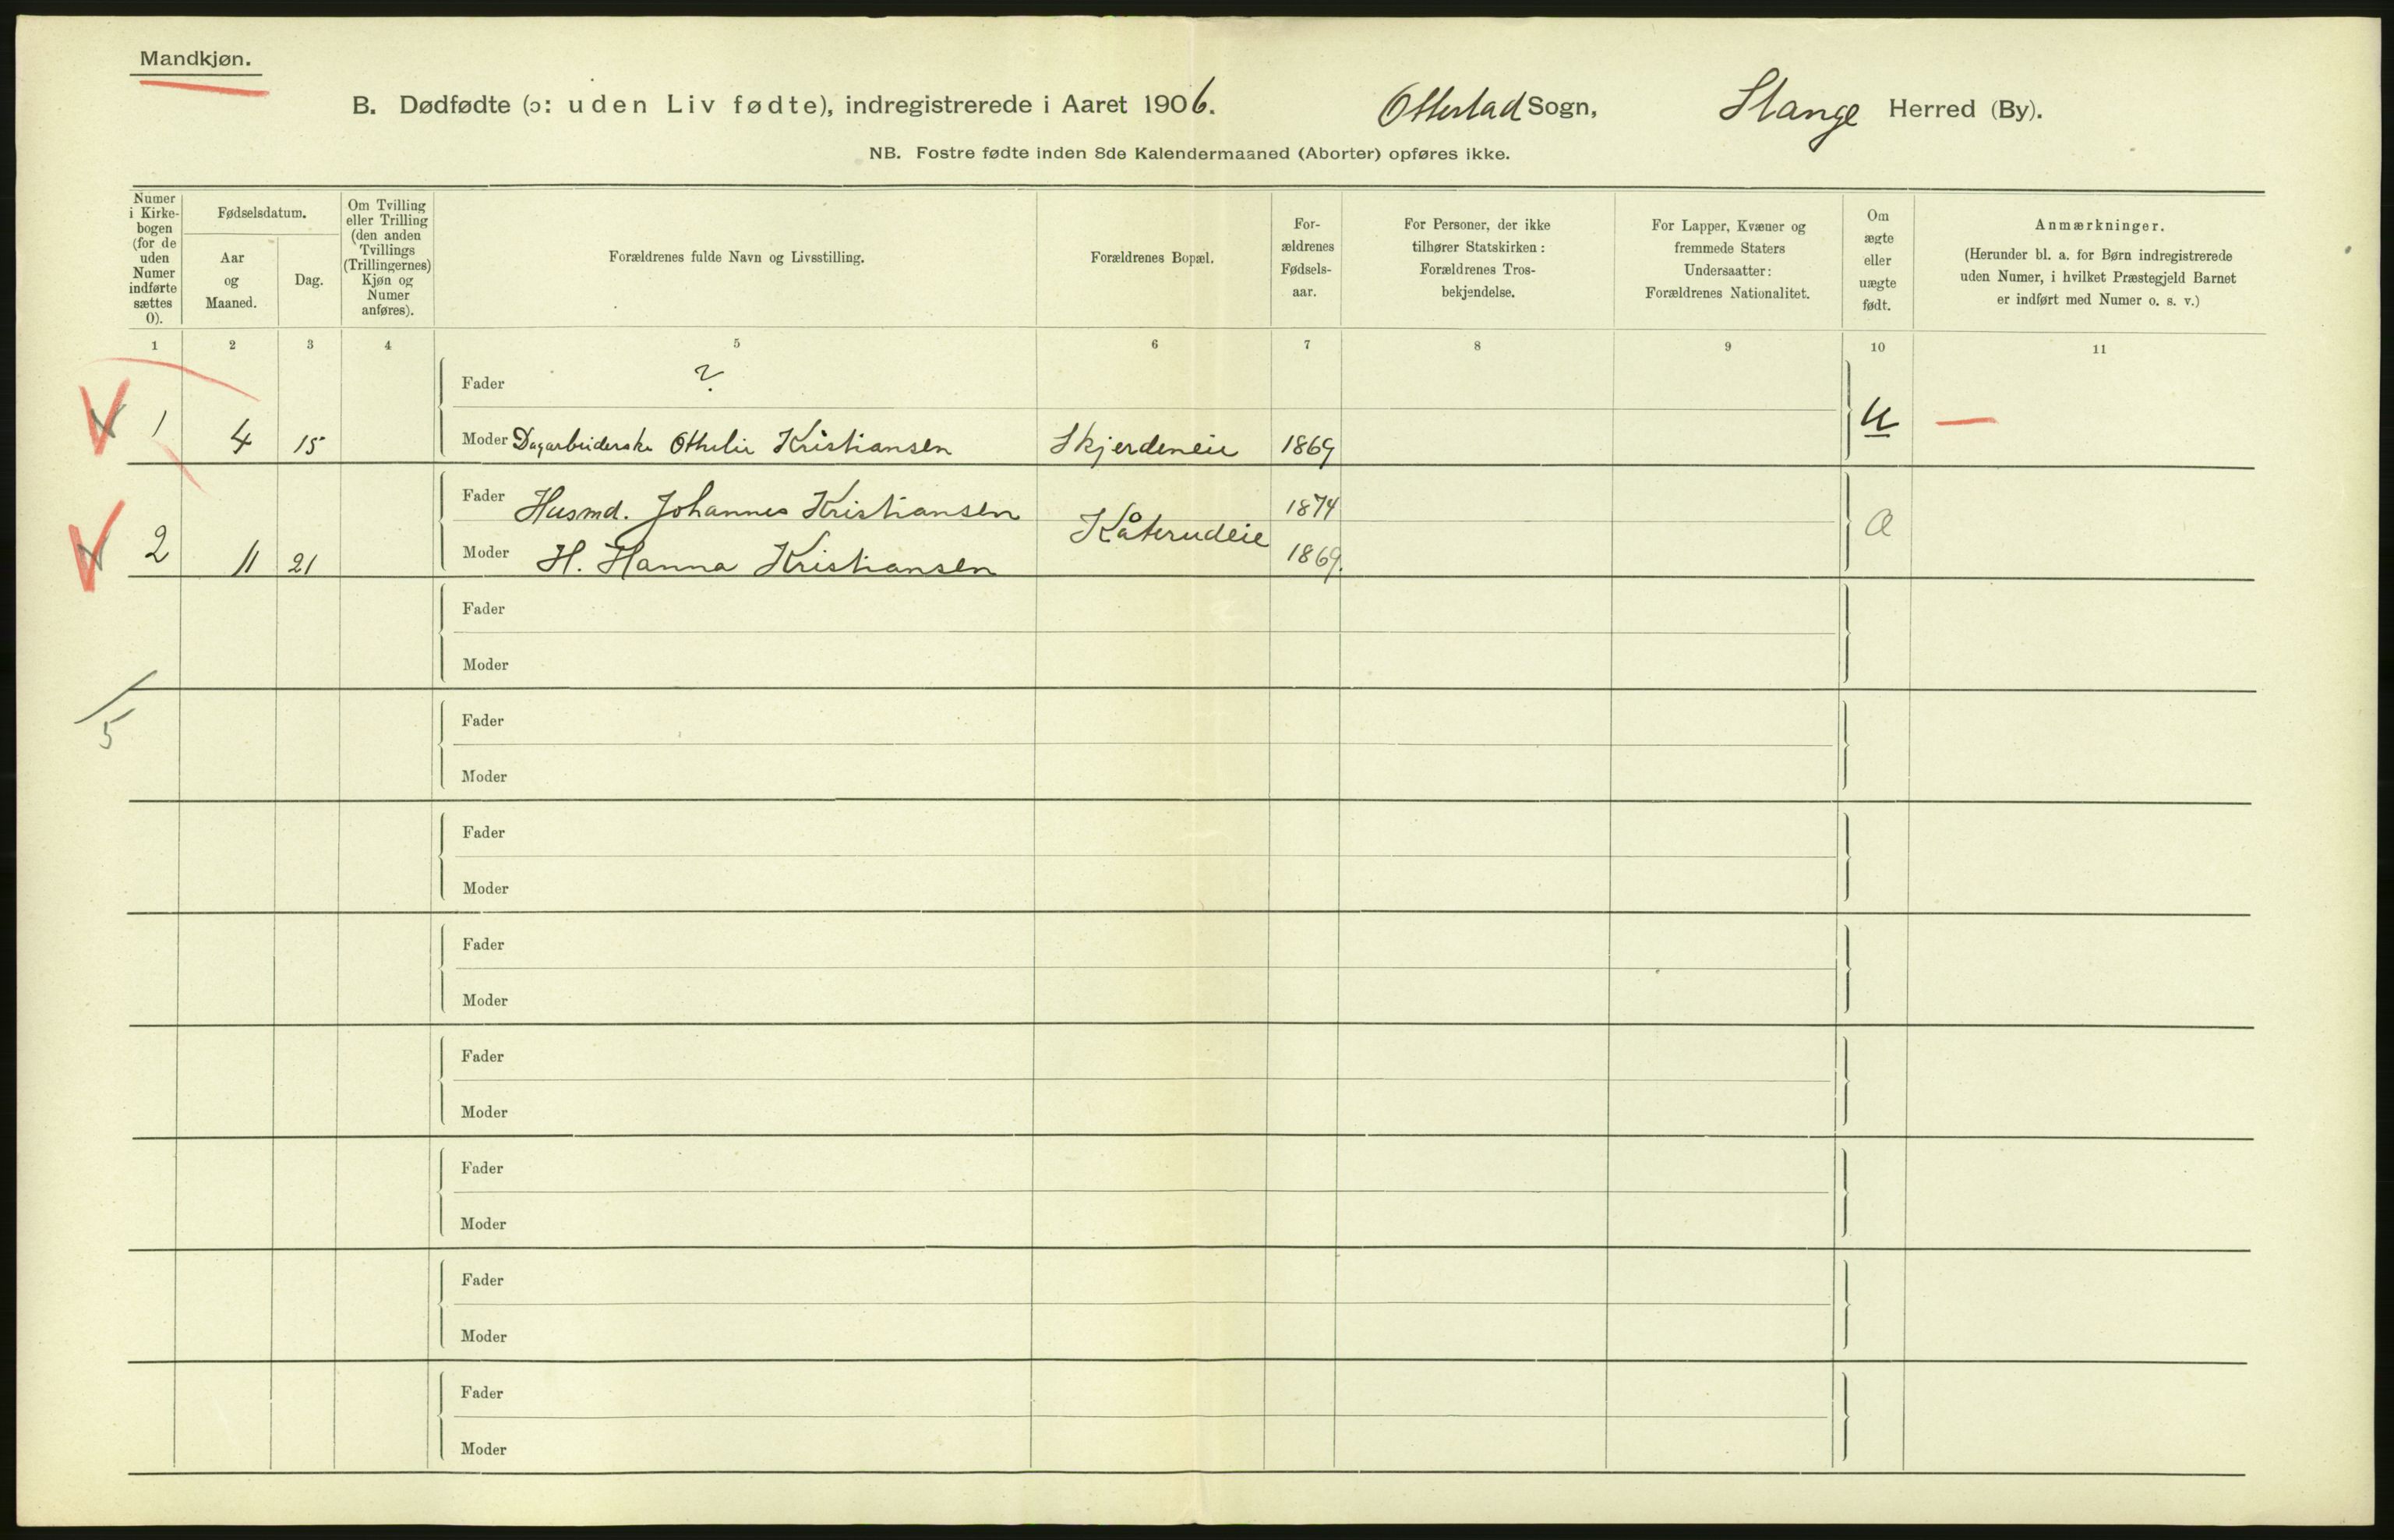 Mandkjøn.
B. Dødfødte (ɔ: uden Liv fødte), indregistrerede i Aaret 1906. Ottestad Sogn, Stange Herred (By).
NB. Fostre fødte inden 8de Kalendermaaned (Aborter) opføres ikke.
Numer i Kirke-bogen (for de uden Numer indførte sættes 0).
Fødselsdatum.
Aar og Maaned.
Dag.
Om Tvilling eller Trilling (den anden Tvillings (Trillingernes) Kjøn og Numer anføres).
Forældrenes fulde Navn og Livsstilling.
Forældrenes Bopæl.
For-ældrenes Fødsels-aar.
For Personer, der ikke tilhører Statskirken: Forældrenes Tros-bekjendelse.
For Lapper, Kvæner og fremmede Staters Undersaatter: Forældrenes Nationalitet.
Om ægte eller uægte født.
Anmærkninger.
(Herunder bl. a. for Børn indregistrerede uden Numer, i hvilket Præstegjeld Barnet er indført med Numer o. s. v.)
1 2 3 4 5 6 7 8 9 10 11
Fader ?
1 4 15 Moder Dagarbeiderske Othelie Kristiansen Skjerdeneie 1869 U —
Fader Husmd. Johannes Kristiansen 1874
2 11 21 Moder H. Hanna Kristiansen Kåterudeie 1869. Æ
Fader
Moder
/5
Fader
Moder
Fader
Moder
Fader
Moder
Fader
Moder
Fader
Moder
Fader
Moder
Fader
Moder